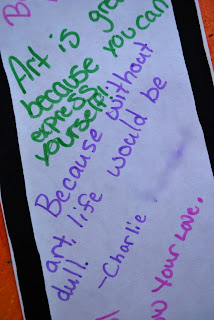 B
Art is gre
because you can
express
yourself!
Because without
art, life would be
dull.
-Charlie
ow Your Love.